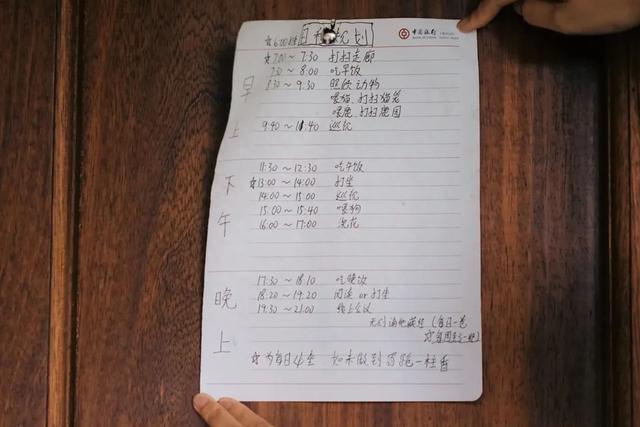 中国银行
BANK OF CHINA
☆6:00起 日程规划
☆7:00～7:30 打扫走廊
7:30～8:00 吃早饭
8:30～9:30 照顾动物
喂猫、打扫猫笼
喂鹿、打扫鹿园
早上
9:40～11:40 巡轮
11:30～12:30 吃午饭
☆13:00～14:00 打坐
14:00～15:00 巡轮
15:00～15:40 喂狗
16:00～17:00 浇花
下午
17:30～18:10 吃晚饭
18:20～19:20 阅读 or 打坐
19:30～21:00 晚上会议
晚上
无则诵地藏经(每日一卷
☆为每日必坐 如未做到罚跪一柱香